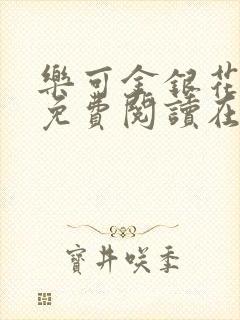 樂可金銀花
免費閱讀在
寶井咲季